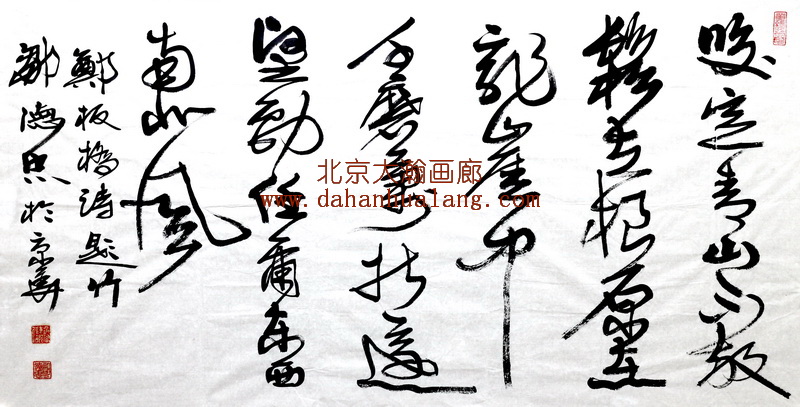 咬定青山不放
鬆立根原在
亂崖中
千磨萬折還
堅勁任爾東西
南北風
鄭板橋詩題竹
鄒德忠於京華
北京大瀚画廊
www.dahanhualang.com